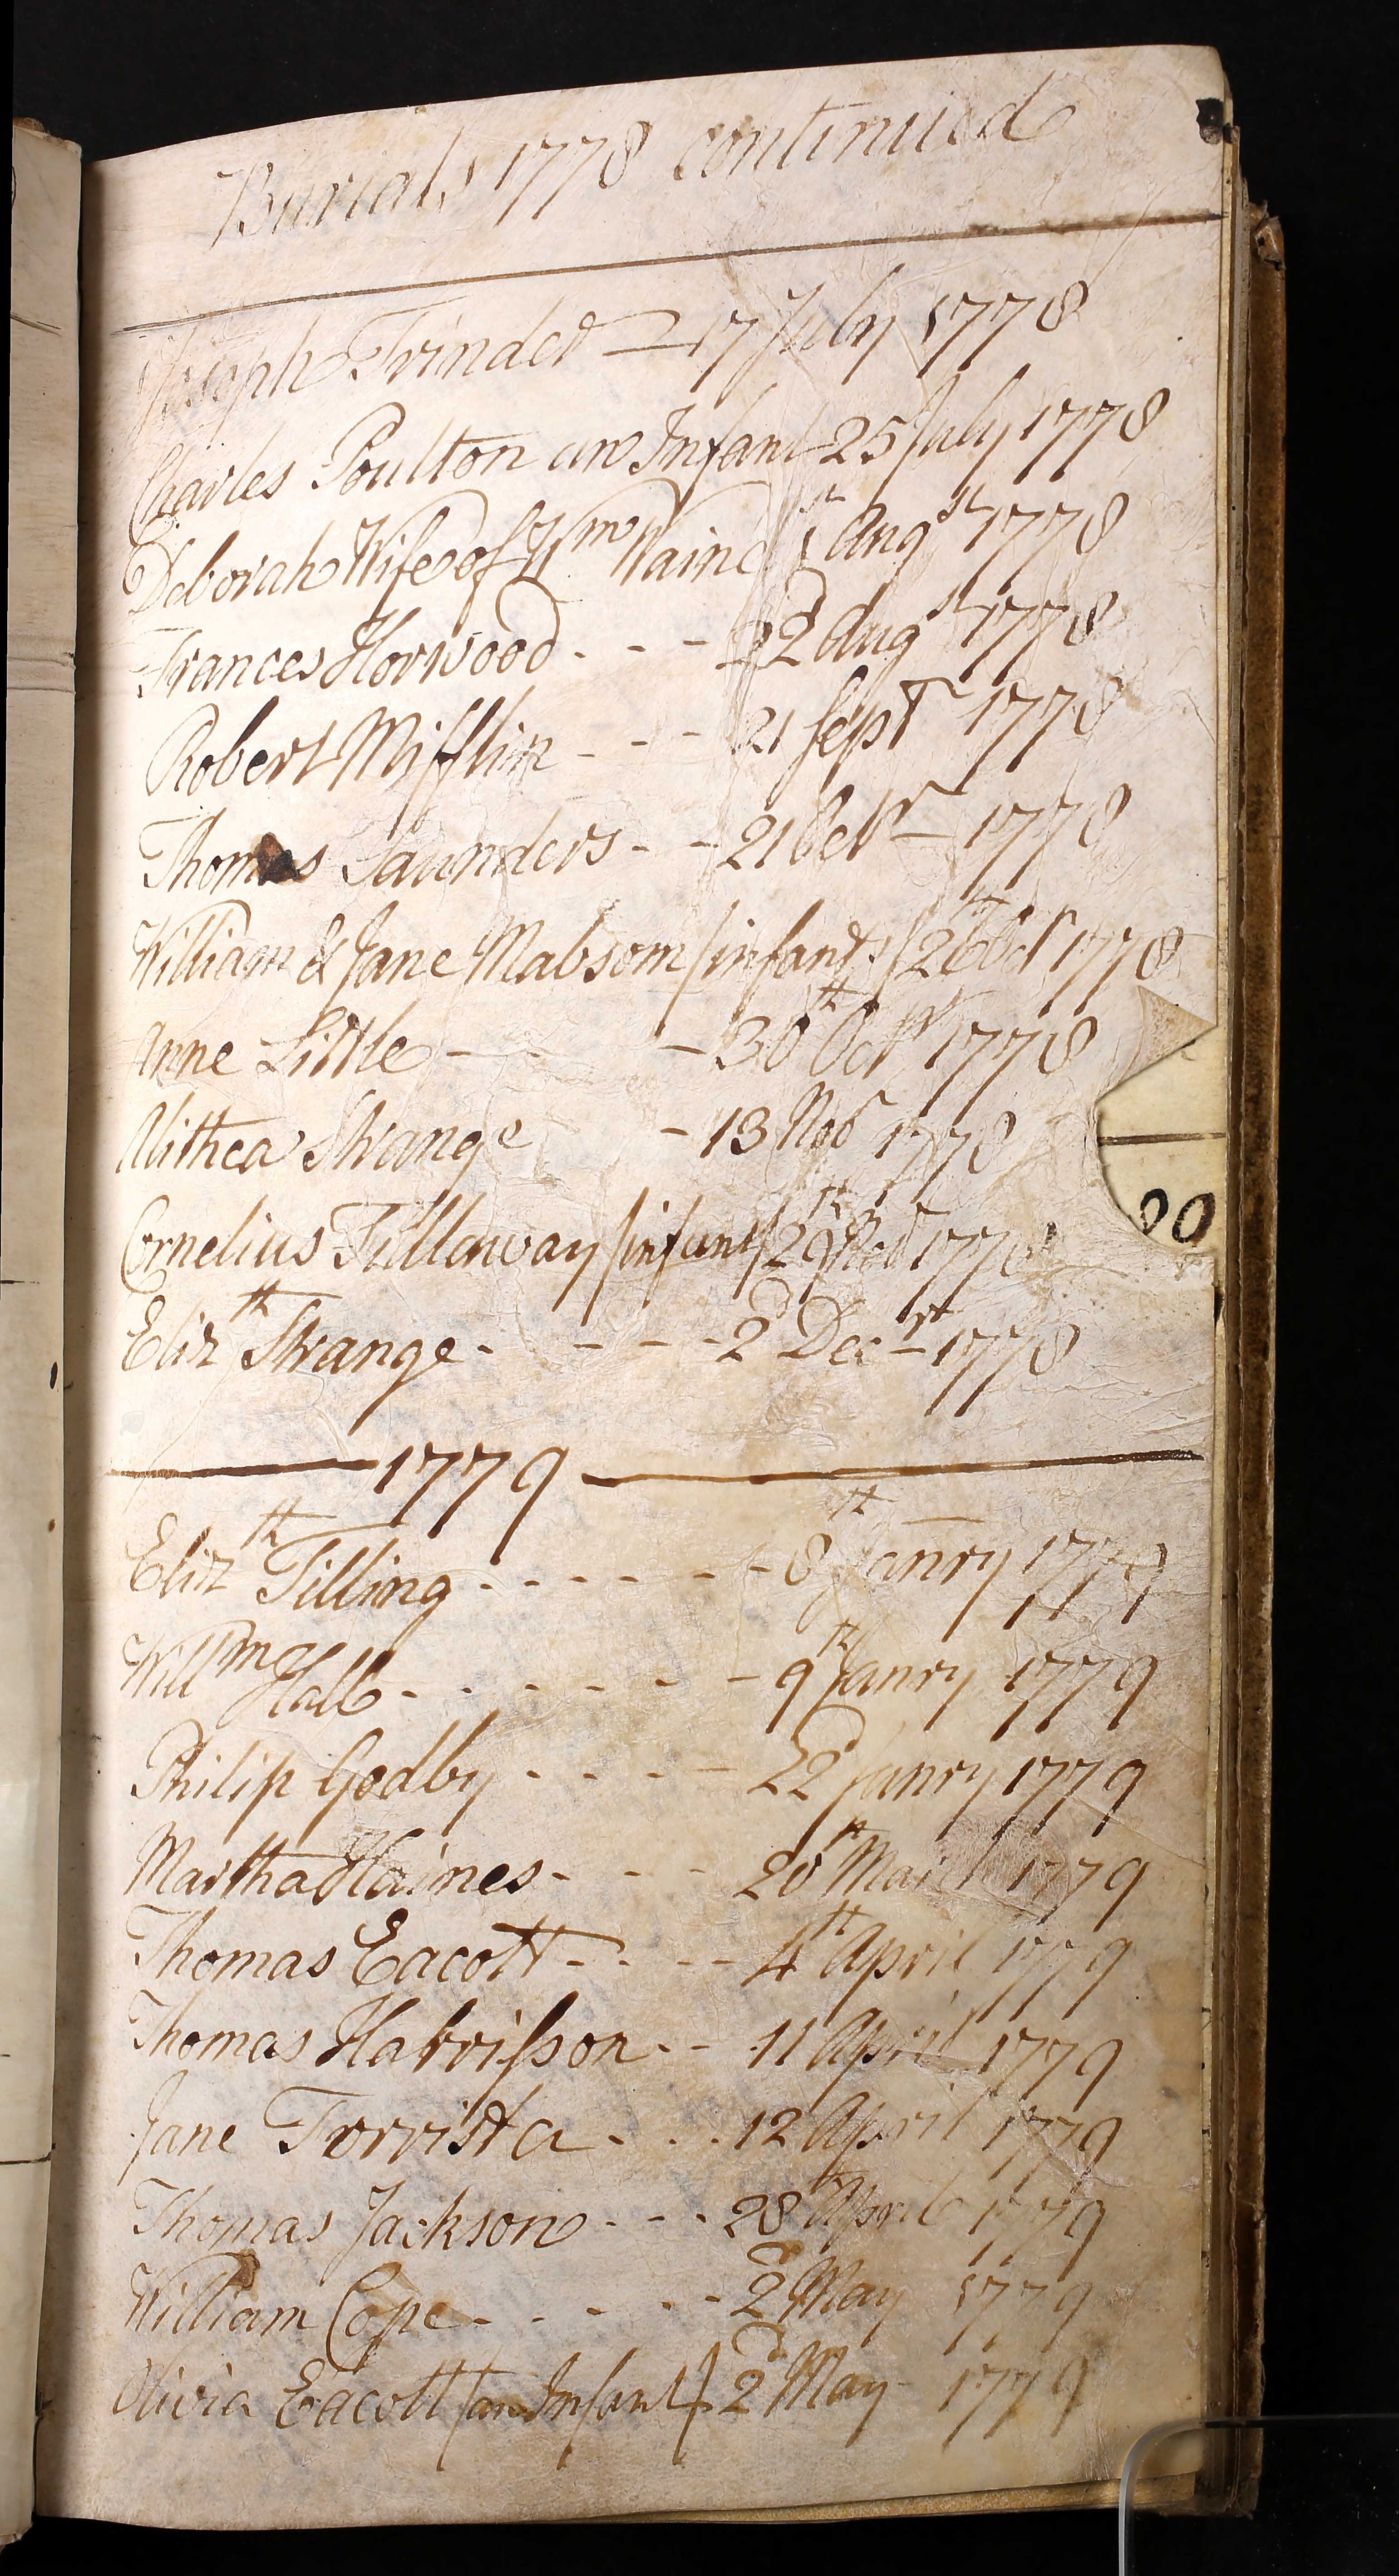 Burials 1778 continued
Joseph Trinder — 17 July 1778
Charles Poulton an Infant 25 July 1778
Deborah Wife of Wm 1st Augst 1778
Frances Horwood - - - 22d Augst 1778
Robert Mifflin - - - 21 Sepr 1778
Thomas Saunders - - 21 Octr 1778
William & Jane Mabsom /infants/ 26th Octr 1778
Anne Little - - 30th Octr 1778
Alithea Strange - 13 Novr 1778
Cornelius Tillaway /infant/ 29th Novr 1778
Elizth Strange - - - - 2d Decr 1778
1779
Elizth Tilling - - - - - - - 8th Janry 1779
Willm Hall - - - - - - - 9th Janry 1779
Philip Godby - - - - - 22d Janry 1779
Martha Haines - - - 20th March 1779
Thomas Eacott - - - - 4th April 1779
Thomas Harrisson - - 11 April 1779
Jane - - - 12 April 1779
Thomas Jackson - - - 28th April 1779
William Cope - - - - - 2d May 1779
Olivia Eacott /an Infant/ 2d May 1779